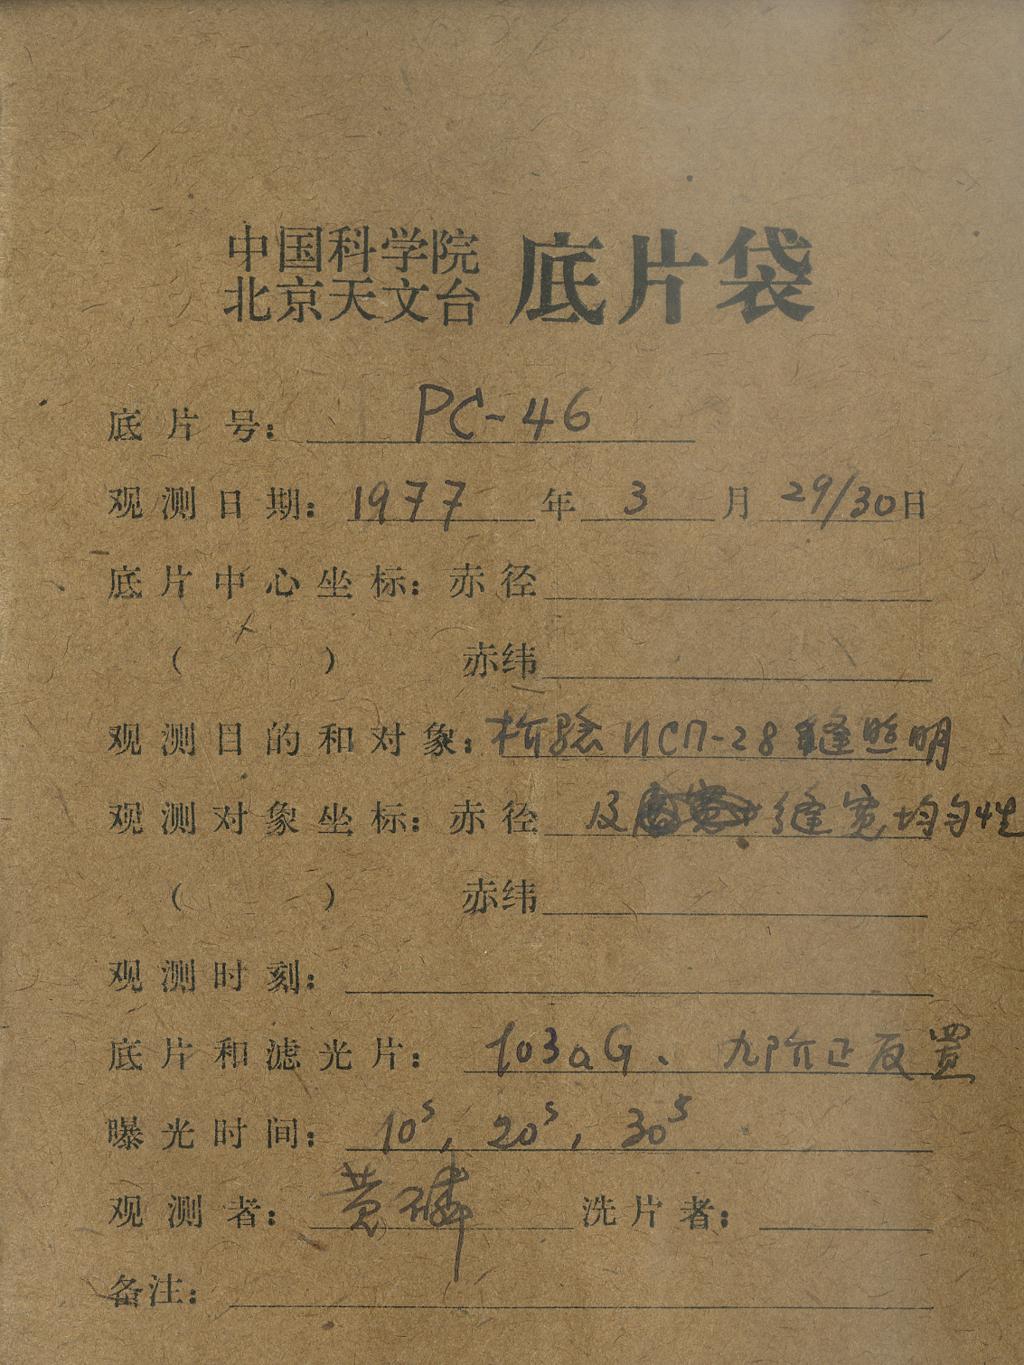 中国科学院
北京天文台 底片袋
底片号: PC-46
观测日期: 1977 年 3 月 29/30 日
底片中心坐标: 赤径
( ) 赤纬
观测目的和对象: 检验 ИСП-28 缝照明
观测对象坐标: 赤径 及 缝宽均匀性
( ) 赤纬
观测时刻:
底片和滤光片: 103aG、九阶正反置
曝光时间: 10s, 20s, 30s
观测者: 黄磷 洗片者:
备注: